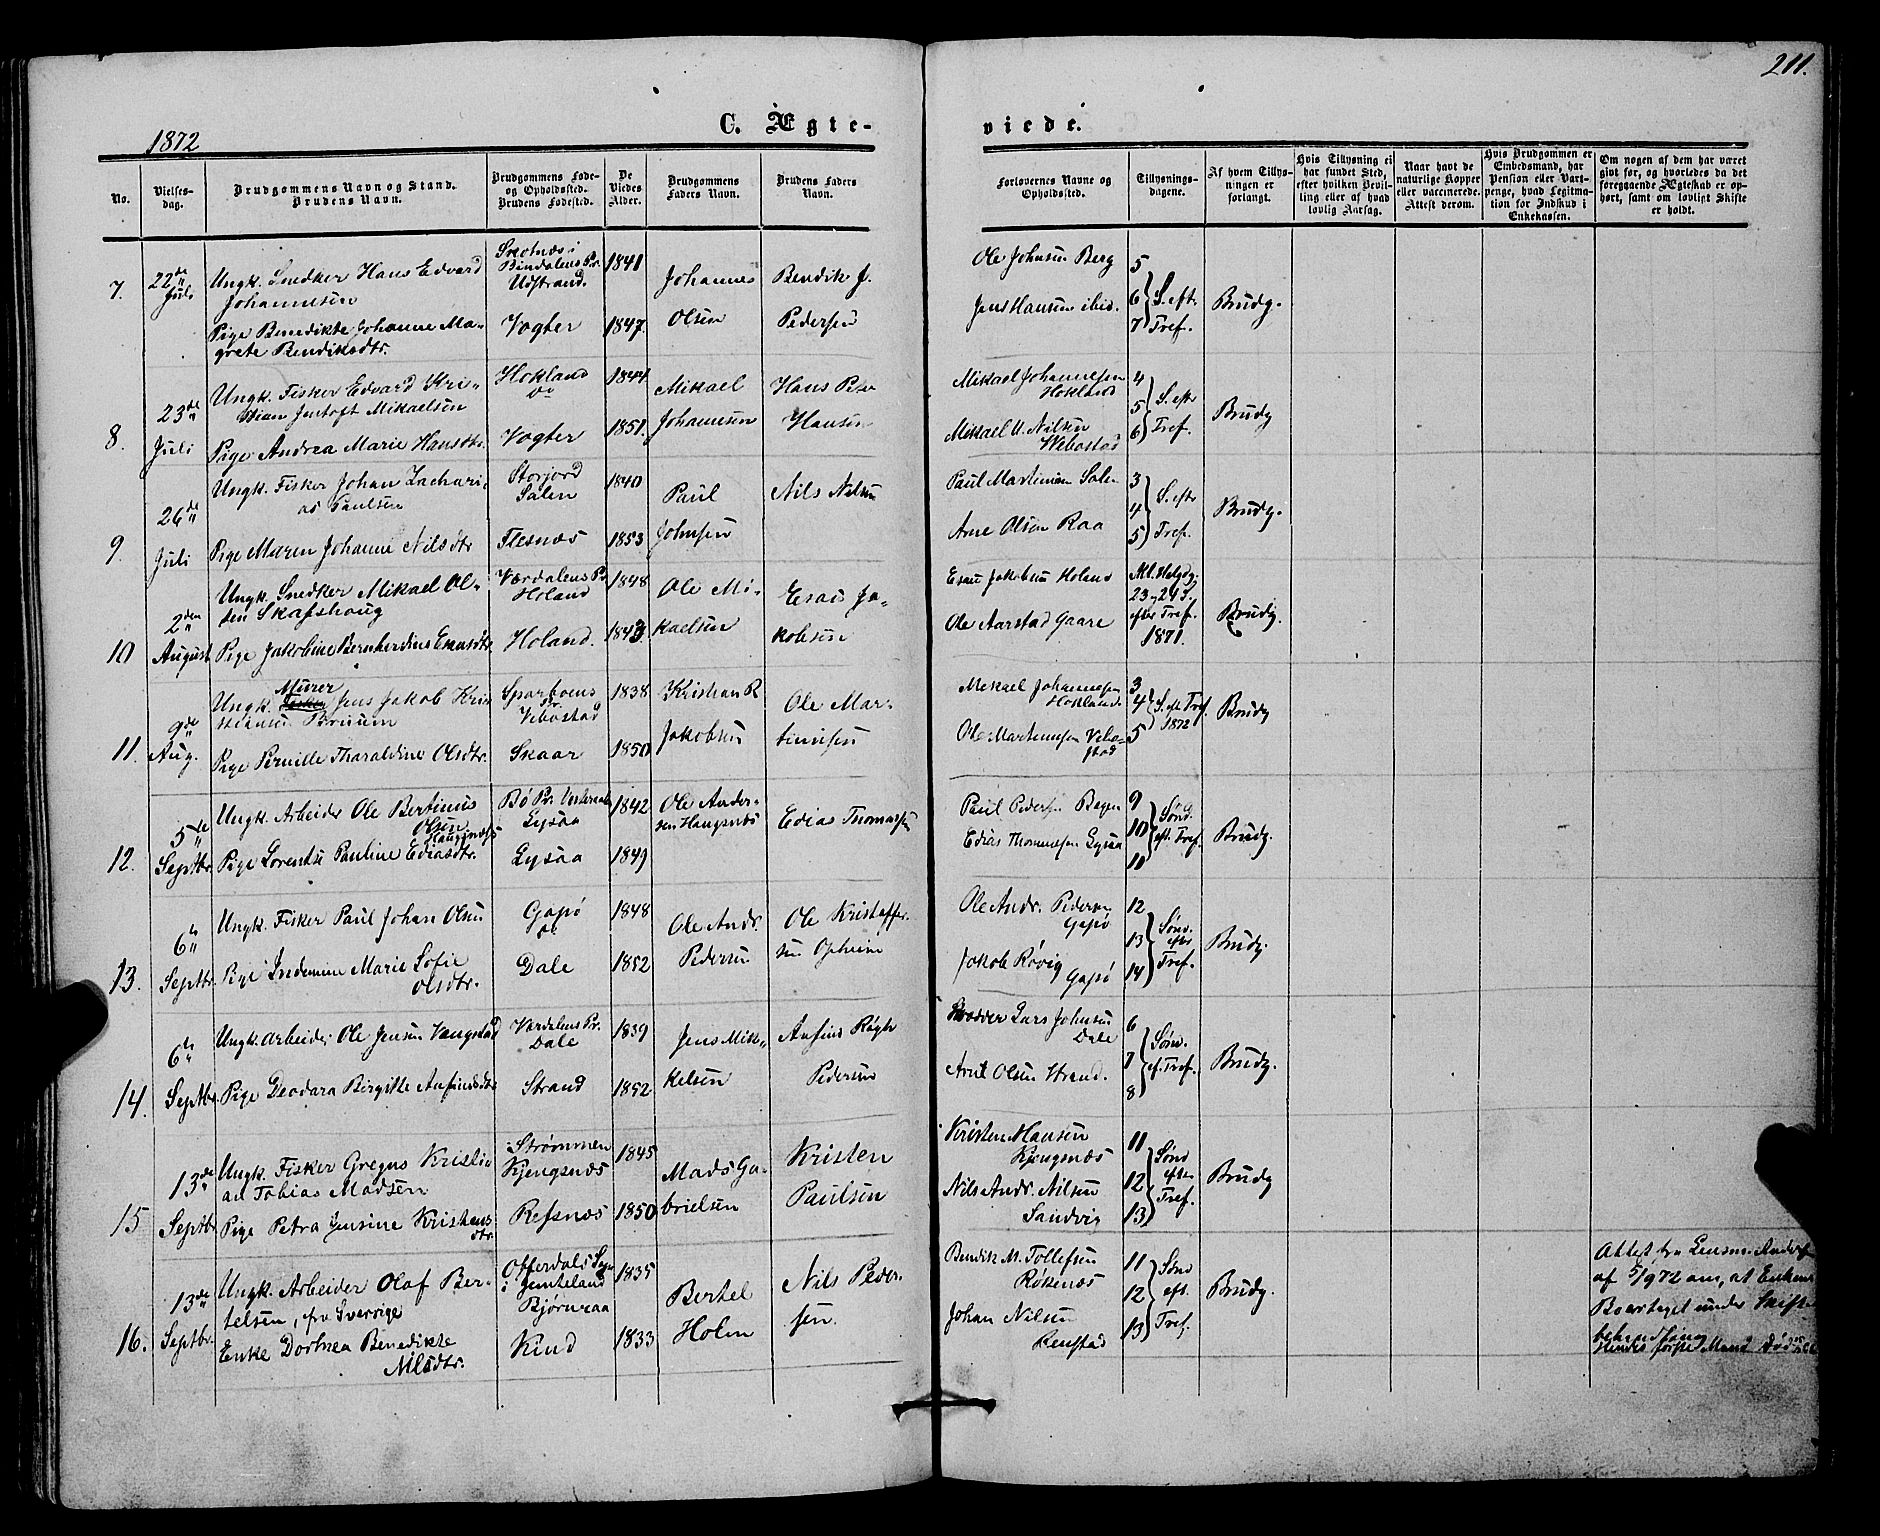 211.
1872
C. Ægte-
viede.
No.
Vielses-
dag.
Brudgommens Navn og Stand.
Brudens Navn.
Brudgommens Føde-
og Opholdssted.
Brudens Fødested.
De
Viedes
Alder.
Brudgommens
Faders Navn.
Brudens Faders
Navn.
Forlovernes Navne og
Opholdssted.
Tillysnings-
dagene.
Af hvem Tillys-
ningen er
forlangt.
Hvis Tillysning ei
har fundet Sted,
efter hvilken Bevil-
ling eller af hvad
lovlig Aarsag.
Naar havt de
naturlige Kopper
eller vaccinerede.
Attest derom.
Hvis Brudgommen er
Embedsmand, har
Pension eller Vart-
penge, hvad Legitima-
tion for Indskud i
Enkekassen.
Om nogen af dem har været
gift før, og hvorledes da det
foregaaende Ægteskab er op-
hørt, samt om lovligt Skifte
er holdt.
7.
22de
Juli
Ungk. Snedker Hans Edvard
Johannesen
Pige Benedikte Johanne Ma-
grete Bendiksdtr.
Skotnæs i
Bindalens Pr.
Udstrand.
Vogter
1841
1847.
Johannes
Olsen
Bendik J.
Pedersen
Ole Johnsen Berg
Jens Hansen ibid.
5
6 S. eft.
7 Tref.
Brudg.
8.
23de
Juli
Ungk. Fisker Edvard Kri-
stian Jentoft Mikaelsen
Pige Andrea Marie Hansdtr.
Hokland
do
Vogter
1844
1851.
Mikael
Johannsen
Hans Peter
Hansen
Mikael Johannesen
Hokland
Mikael U. Nilsen
Webostad
4
5 S. eftr
6 Tref.
Brudg
9
26de
Juli
Ungk. Fisker Johan Zachari-
as Paulsen
Pige Maren Johanne Nilsdtr
Storjord
Salen
Flesnæs
1840
1853
Paul
Johnsen
Nils Nilsen
Paul Martinsen Salen
Arne Olsen Raa
3
4 S. eftr
5 Tref.
Brudg.
10
2den
August
Ungk. Snedker Mikael Ol-
sen Skafshoug
Pige Jakobine Bernherdine Esausdtr
Værdalens Pr
Holand
Holand.
1848
1843
Ole Mi-
kaelsen
Esau Ja-
kobsen
Esau Jakobsen Holand
Ole Aarstad Gaare
23 24 S.
efter Tref.
1871.
Brudg.
11.
9de
Aug.
Murer
Ungk. Jens Jakob Kri-
stiansen
Pige Pernille Tharaldine Olsdtr.
Sparboens
Pr
Vebostad
Skaar
1838
1850
Kristian R
Jakobsen
Ole Mar-
tinusen
Mekael Johannesen
Hokland
Ole Martinusen Vebo-
stad
3
4 S. eft Tref.
1872
5
Brudg
12.
5te
Septbr.
Ungk. Arbeider Ole Bertinus
Olsen
Haugsnæs
Pige Lorentse Pauline Ediasdtr.
Bø Pr. Vesteraalen
Lysaa
Lysaa
1842
1849
Ole Ander-
sen Haugsnæs
Edias Thomassen
Paul Pedersen
Edias Thomassen Lysaa
9
10 Sønd.
eft. Tref.
11
Brudg.
13.
6te
Septbr.
Ungk. Fisker Paul Johan Olsen
Pige Indemine Marie Sofie
Olsdtr.
Gapø
do
Dale
1848
1852
Ole Andr.
Pedersen
Ole Kristoffer-
sen Opheim
Ole Andr. Pedersen
Gapø
Jakob Røvig
Gapø
12
13 Sønd.
eftr
14 Tref.
Brudg.
14.
6te
Septbr.
Ungk. Arbeider Ole Jensen Vangstad
Pige Deodara Birgitte Anfindsdtr
Verdalens Pr.
Dale
Strand
1839
1852
Jens Mik-
kelsen
Anfins Røgle
Pedersen
Skredder Lars Johnsen
Dale
Arnt Olsen Strand.
6
7 Sønd.
ef. Tref.
8
Brudg.
15
13de
Septbr.
Ungk. Fisker Gregus Kristi-
an Tobias Madsen
Pige Petra Jensine Kristens
dtr.
Strømmen
Kjengsnæs
Refsnæs
1845
1850
Mads Ga-
brielsen
Kristen
Paulsen
Kristen Hansen
Kjengsnæs
Nils Andr. Nilsen
Sandvig
11
12 Sønd
eftr
13 Tref.
Brudg
16.
13de
Septbr.
Ungk. Arbeider Olaf Ber-
telsen, fra Sverige
Enke Dorthea Benedikte
Nilsdtr.
Offerdals Sogn
i Jemteland
Bjørnraa
Kind
1835
1833
Bertel
Holm
Nils Peder-
sen.
Bendik M. Tollefsen
Røkenæs
Johan Nilsen
Renstad
11
12 Sønd
eft.
13 Tref.
Brudg.
Attest fra Lensm. Anders
af 5/9 72 om, at Enkens
Bo er taget under Skifte-
behandling
Hendes første Mand død